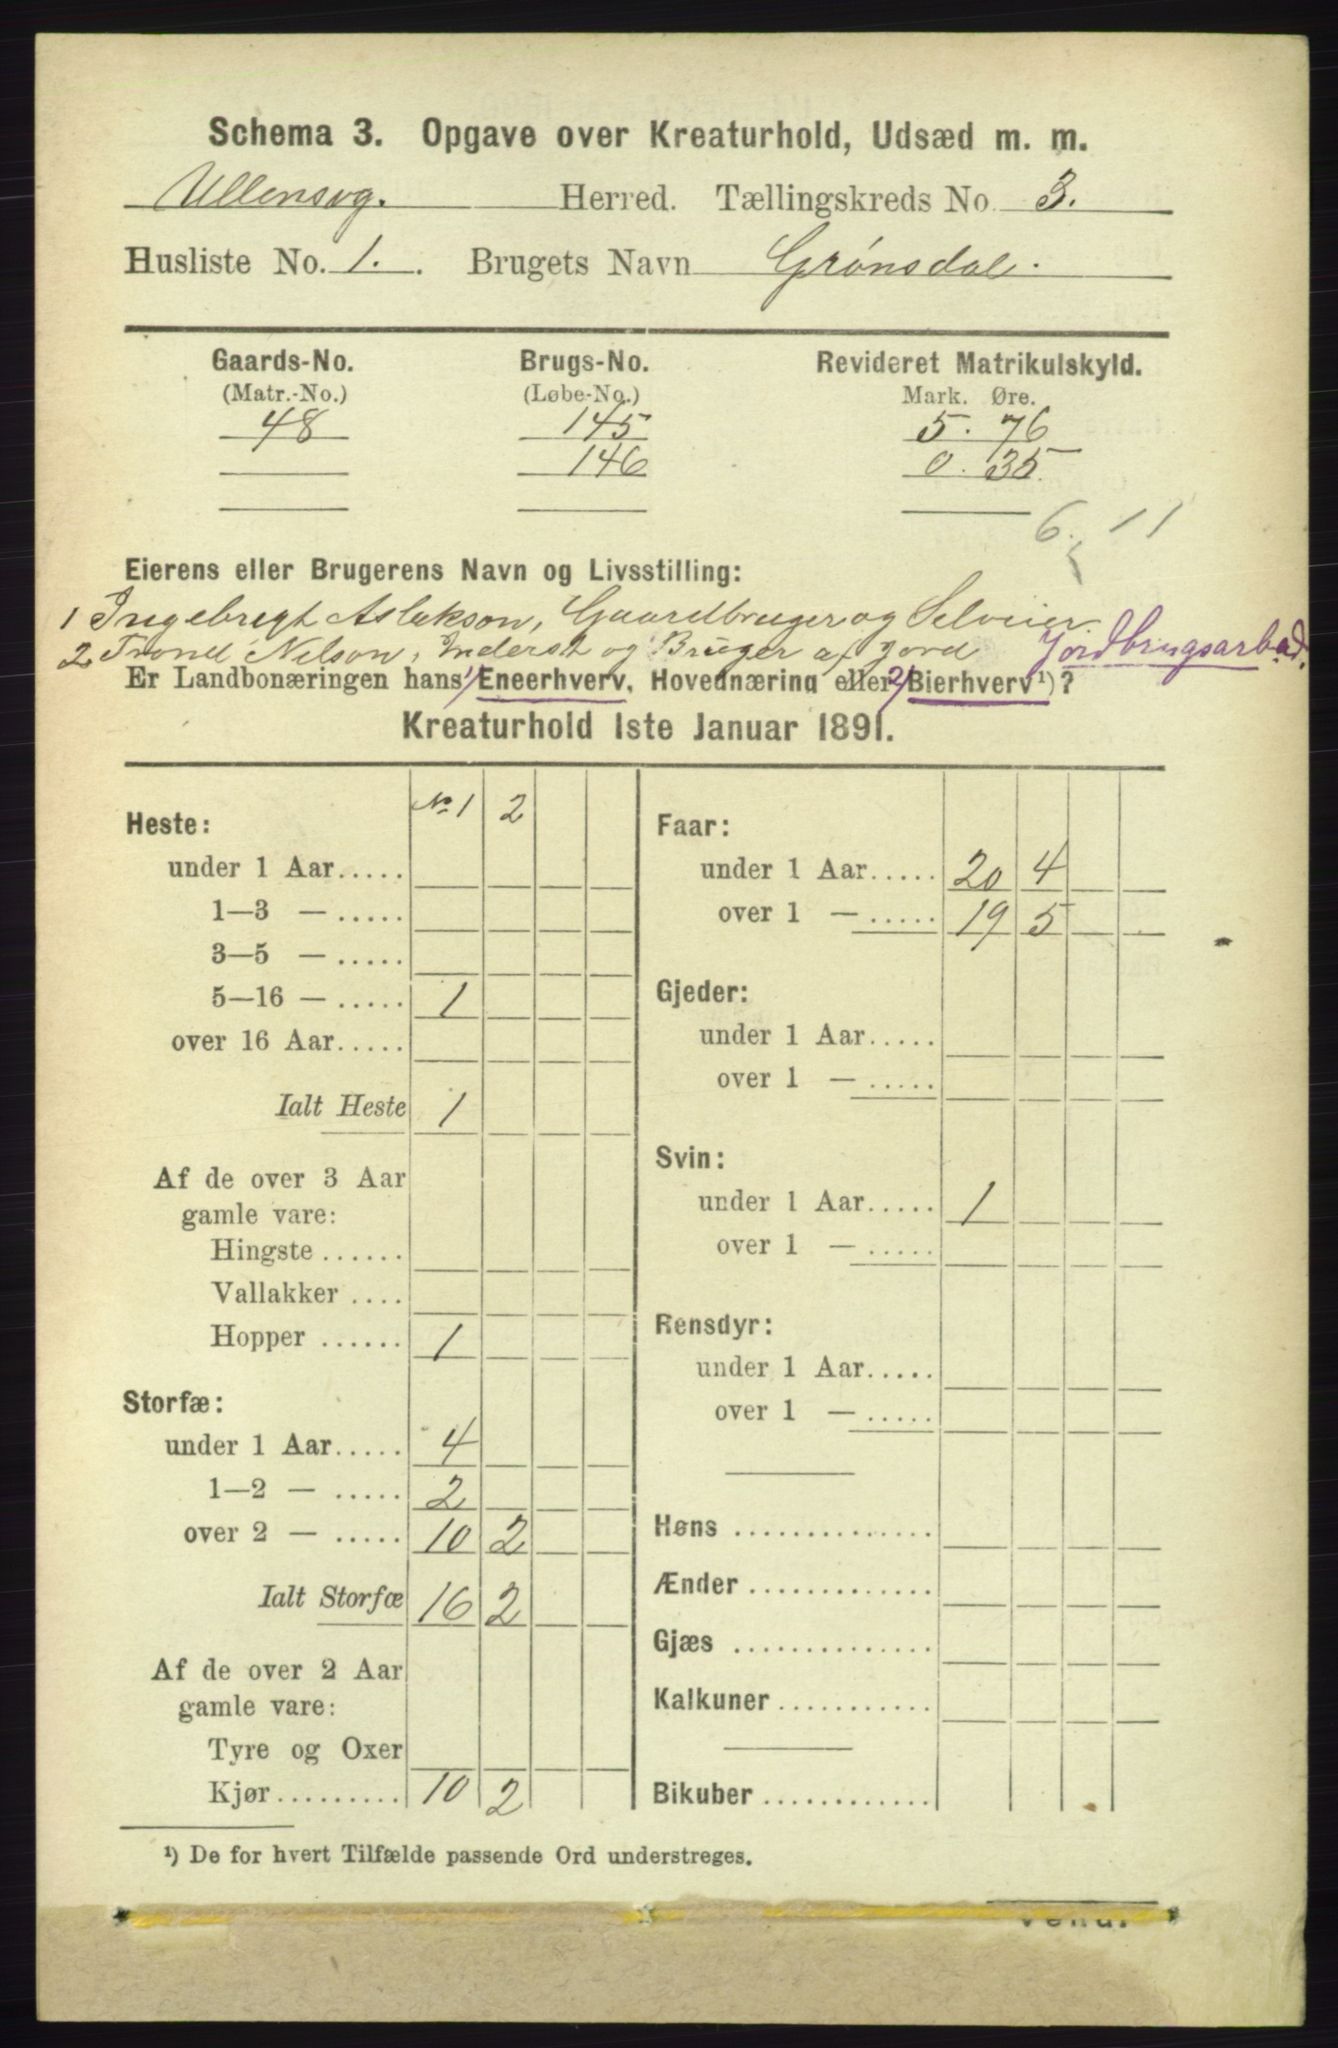 Schema 3. Opgave over Kreaturhold, Udsæd m. m.
Ullensvg. Herred. Tællingskreds No. 3.
Husliste No. 1. Brugets Navn Grønsdal.
Gaards-No. Brugs-No. Revideret Matrikulskyld.
(Matr.-No.) (Løbe-No.) Mark. Øre.
48 145 5. 76
146 0. 35
6. 11
Eierens eller Brugerens Navn og Livsstilling:
1 Ingebrigt Aslakson, Gaardbruger og Selveier
2 Trond Nelson, Inderst og Bruger af Jord Jordbrugsarbeid.
Er Landbonæringen hans 1/ Eneerhverv, Hovednæring eller 2/ Bierhverv¹)?
Kreaturhold 1ste Januar 1891.
No 1 2
Heste:
under 1 Aar.....
1—3 — .....
3—5 — .....
5—16 — ..... 1
over 16 Aar.....
Ialt Heste 1
Af de over 3 Aar
gamle vare:
Hingste ......
Vallakker ....
Hopper ...... 1
Storfæ:
under 1 Aar..... 4
1—2 — ..... 2
over 2 — ..... 10 2
Ialt Storfæ 16 2
Af de over 2 Aar
gamle vare:
Tyre og Oxer
Kjør......... 10 2
Faar:
under 1 Aar..... 20 4
over 1 — ..... 19 5
Gjeder:
under 1 Aar.....
over 1 — .....
Svin:
under 1 Aar..... 1
over 1 — .....
Rensdyr:
under 1 Aar.....
over 1 — .....
Høns ..............
Ænder .............
Gjæs ..............
Kalkuner ...........
Bikuber ............
¹) De for hvert Tilfælde passende Ord understreges.
Vend.